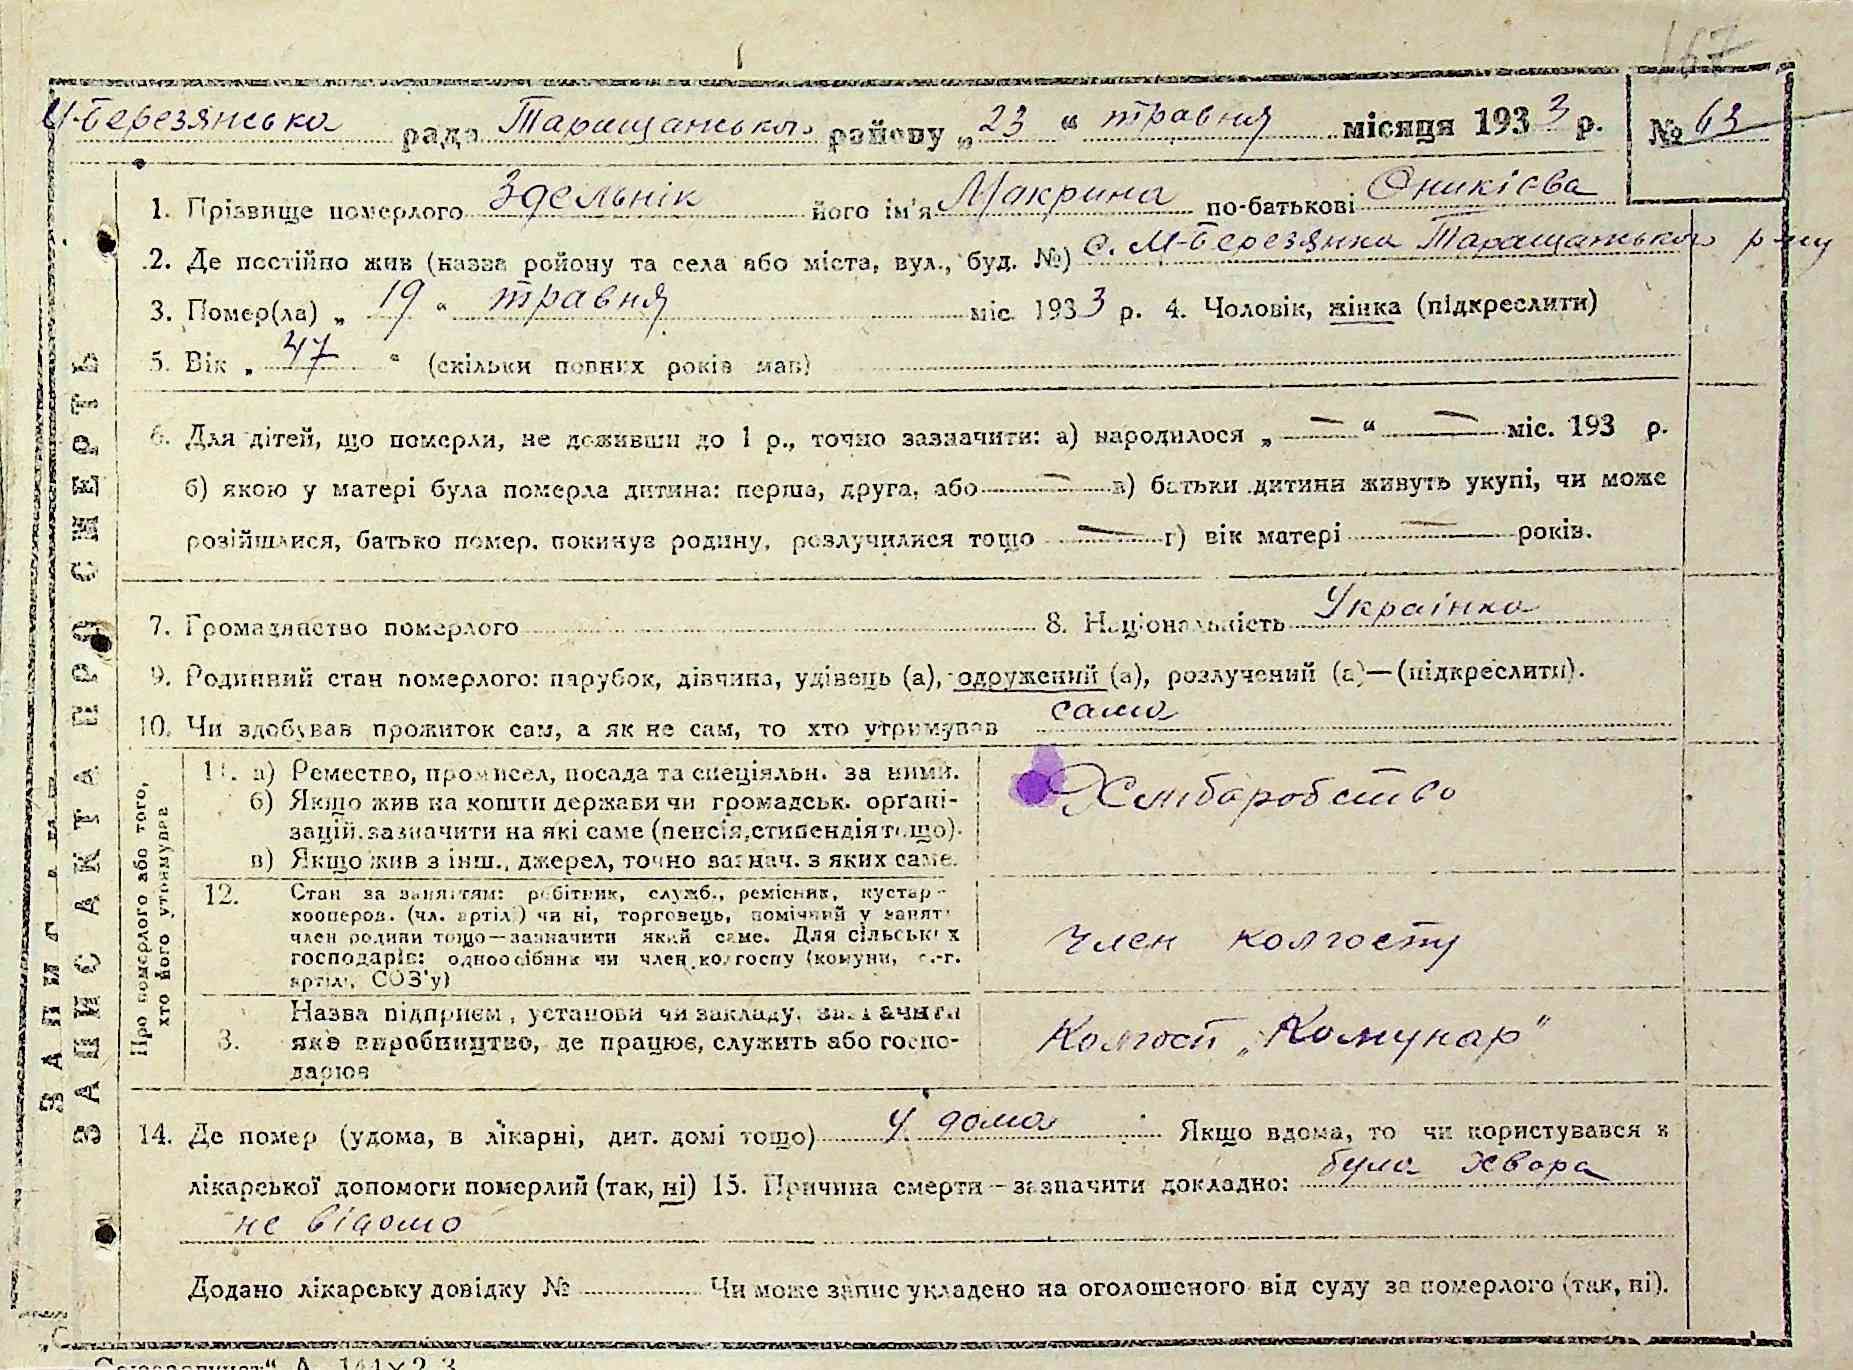 167
М-Березянська рада Таращанського району „23“ травня місяця 1933 р. № 63
1. Прізвище померлого Здельнік його ім'я Макрина по-батькові Оникієва
2. Де постійно жив (назва району та села або міста, вул., буд. №) с. М-Березянка Таращанського р-ну
3. Помер(ла) „19“ травня міс. 1933 р. 4. Чоловік, жінка (підкреслити)
5. Вік „47“ (скільки повних років мав)
6. Для дітей, що померли, не доживши до 1 р., точно зазначити: а) народилося „—“ — міс. 193 р.
б) якою у матері була померла дитина: перша, друга, або — в) батьки дитини живуть укупі, чи може
розійшлися, батько помер, покинув родину, розлучилися тощо — г) вік матері — років.
7. Громадянство померлого 8. Національність Українка
9. Родинний стан померлого: парубок, дівчина, удівець (а), одружений (а), розлучений (а)—(підкреслити).
10. Чи здобував прожиток сам, а як не сам, то хто утримував сама
Про померлого або того,
хто його утримував
11. а) Ремество, промисел, посада та спеціяльн. за ними.
б) Якщо жив на кошти держави чи громадськ. органі-
зацій, зазначити на які саме (пенсія, стипендія тощо).
в) Якщо жив з інш., джерел, точно зазнач. з яких саме.
Хліборобство
12. Стан за заняттям: робітник, служб., ремісник, кустар
кооперов. (чл. артілі) чи ні, торговець, помічний у занят.
член родини тощо—зазначити який саме. Для сільських
господарів: одноосібник чи член колгоспу (комуни, с.-г.
артілі, СОЗ'у)
член колгоспу
3. Назва підприєм., установи чи закладу, зазначити
яке виробництво, де працює, служить або госпо-
дарює
Колгосп „Комунар"
14. Де помер (удома, в лікарні, дит. домі тощо) У дома Якщо вдома, то чи користувався з
лікарської допомоги померлий (так, ні) 15. Причина смерти—зазначити докладно: була хвора
не відомо
Додано лікарську довідку № Чи може запис укладено на оголошеного від суду за померлого (так, ні).
ЗАПИС АКТА ПРО СМЕРТЬ